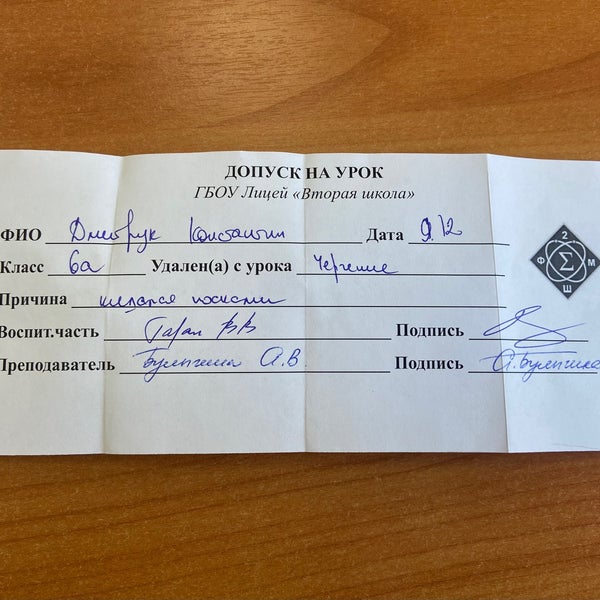 ДОПУСК НА УРОК
ГБОУ Лицей «Вторая школа»
ФИО Дмитрук Константин Дата 9.12
Класс 6а Удален(а) с урока Черчение
Причина кидался носками
Воспит.часть Гарал ВВ Подпись
Преподаватель А.В. Подпись
2
Ф Σ М
Ш